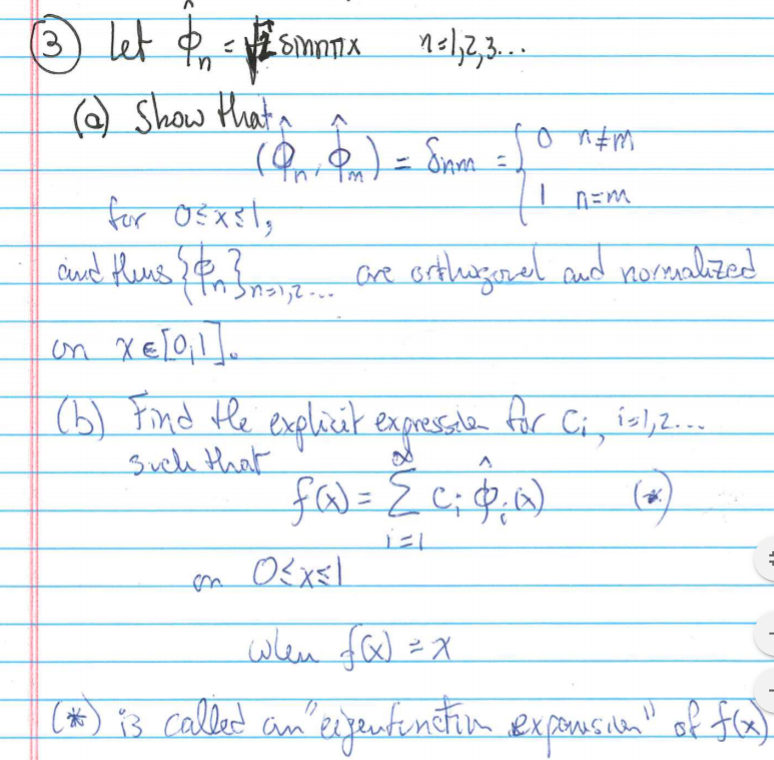 ③ Let φ̂ₙ = √2 sin nπx n=1,2,3...
(a) Show that
(φ̂ₙ, φ̂ₘ) = δnm = { 0 n≠m
1 n=m
for 0≤x≤1,
and thus {φ̂ₙ}n=1,2... are orthogonal and normalized
on x∈[0,1].
(b) Find the explicit expression for Cᵢ, i=1,2...
such that
f(x) = ∑ᵢ₌₁^∞ Cᵢ φ̂ᵢ(x) (*)
on 0≤x≤1
when f(x) = x
(*) is called an "eigenfunction expansion" of f(x)